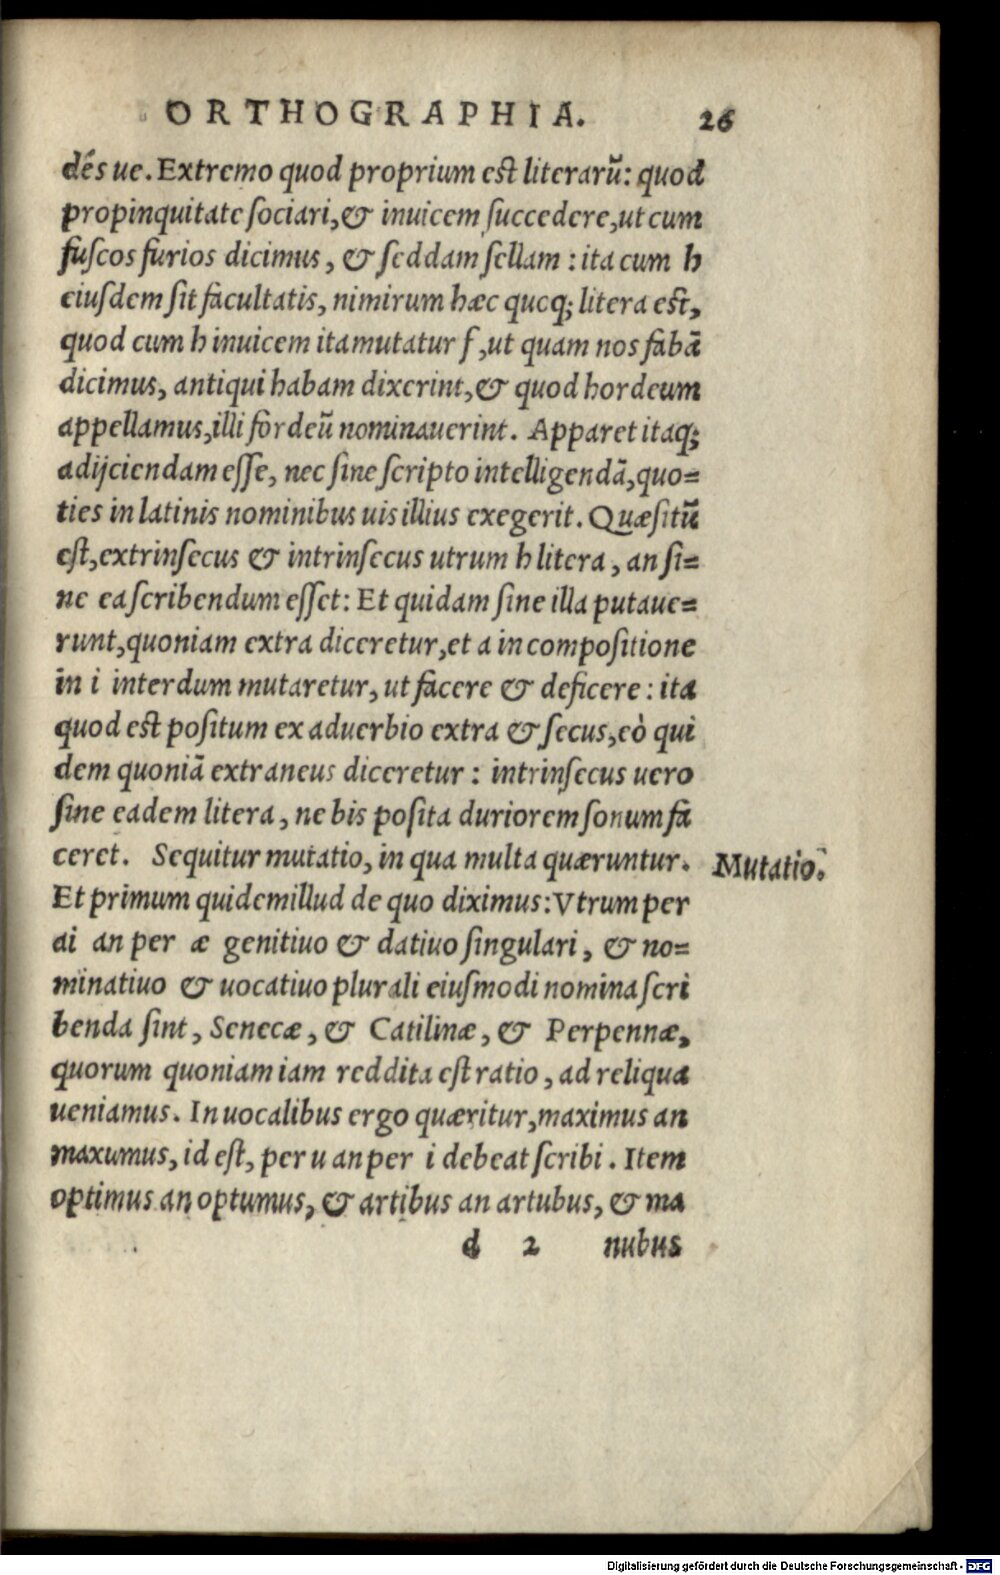 ORTHOGRAPHIA. 26
dẽs ue. Extremo quod proprium est literarũ: quod
propinquitate sociari, & inuicem succedere, ut cum
fuscos furios dicimus, & seddam sellam: ita cum h
eiusdem sit facultatis, nimirum hæc queq; litera est,
quod cum h inuicem ita mutatur f, ut quam nos fabã
dicimus, antiqui habam dixerint, & quod hordeum
appellamus, illi fordeũ nominauerint. Apparet itaq;
adijciendam esse, nec sine scripto intelligendã, quo=
ties in latinis nominibus uis illius exegerit. Quæsitũ
est, extrinsecus & intrinsecus utrum h litera, an si=
ne ea scribendum esset: Et quidam sine illa putaue=
runt, quoniam extra diceretur, et a in compositione
in i interdum mutaretur, ut facere & deficere: ita
quod est positum ex aduerbio extra & secus, eò qui
dem quoniã extraneus diceretur: intrinsecus uero
sine eadem litera, ne bis posita duriorem sonum fa
ceret. Sequitur mutatio, in qua multa quæruntur. Mutatio.
Et primum quidem illud de quo diximus: Vtrum per
ai an per æ genitiuo & datiuo singulari, & no=
minatiuo & uocatiuo plurali eiusmodi nomina scri
benda sint, Senecæ, & Catilinæ, & Perpennæ,
quorum quoniam iam reddita est ratio, ad reliqua
ueniamus. In uocalibus ergo quæritur, maximus an
maxumus, id est, per u an per i debeat scribi. Item
optimus an optumus, & artibus an artubus, & ma
d 2 nubus
Digitalisierung gefördert durch die Deutsche Forschungsgemeinschaft - DFG